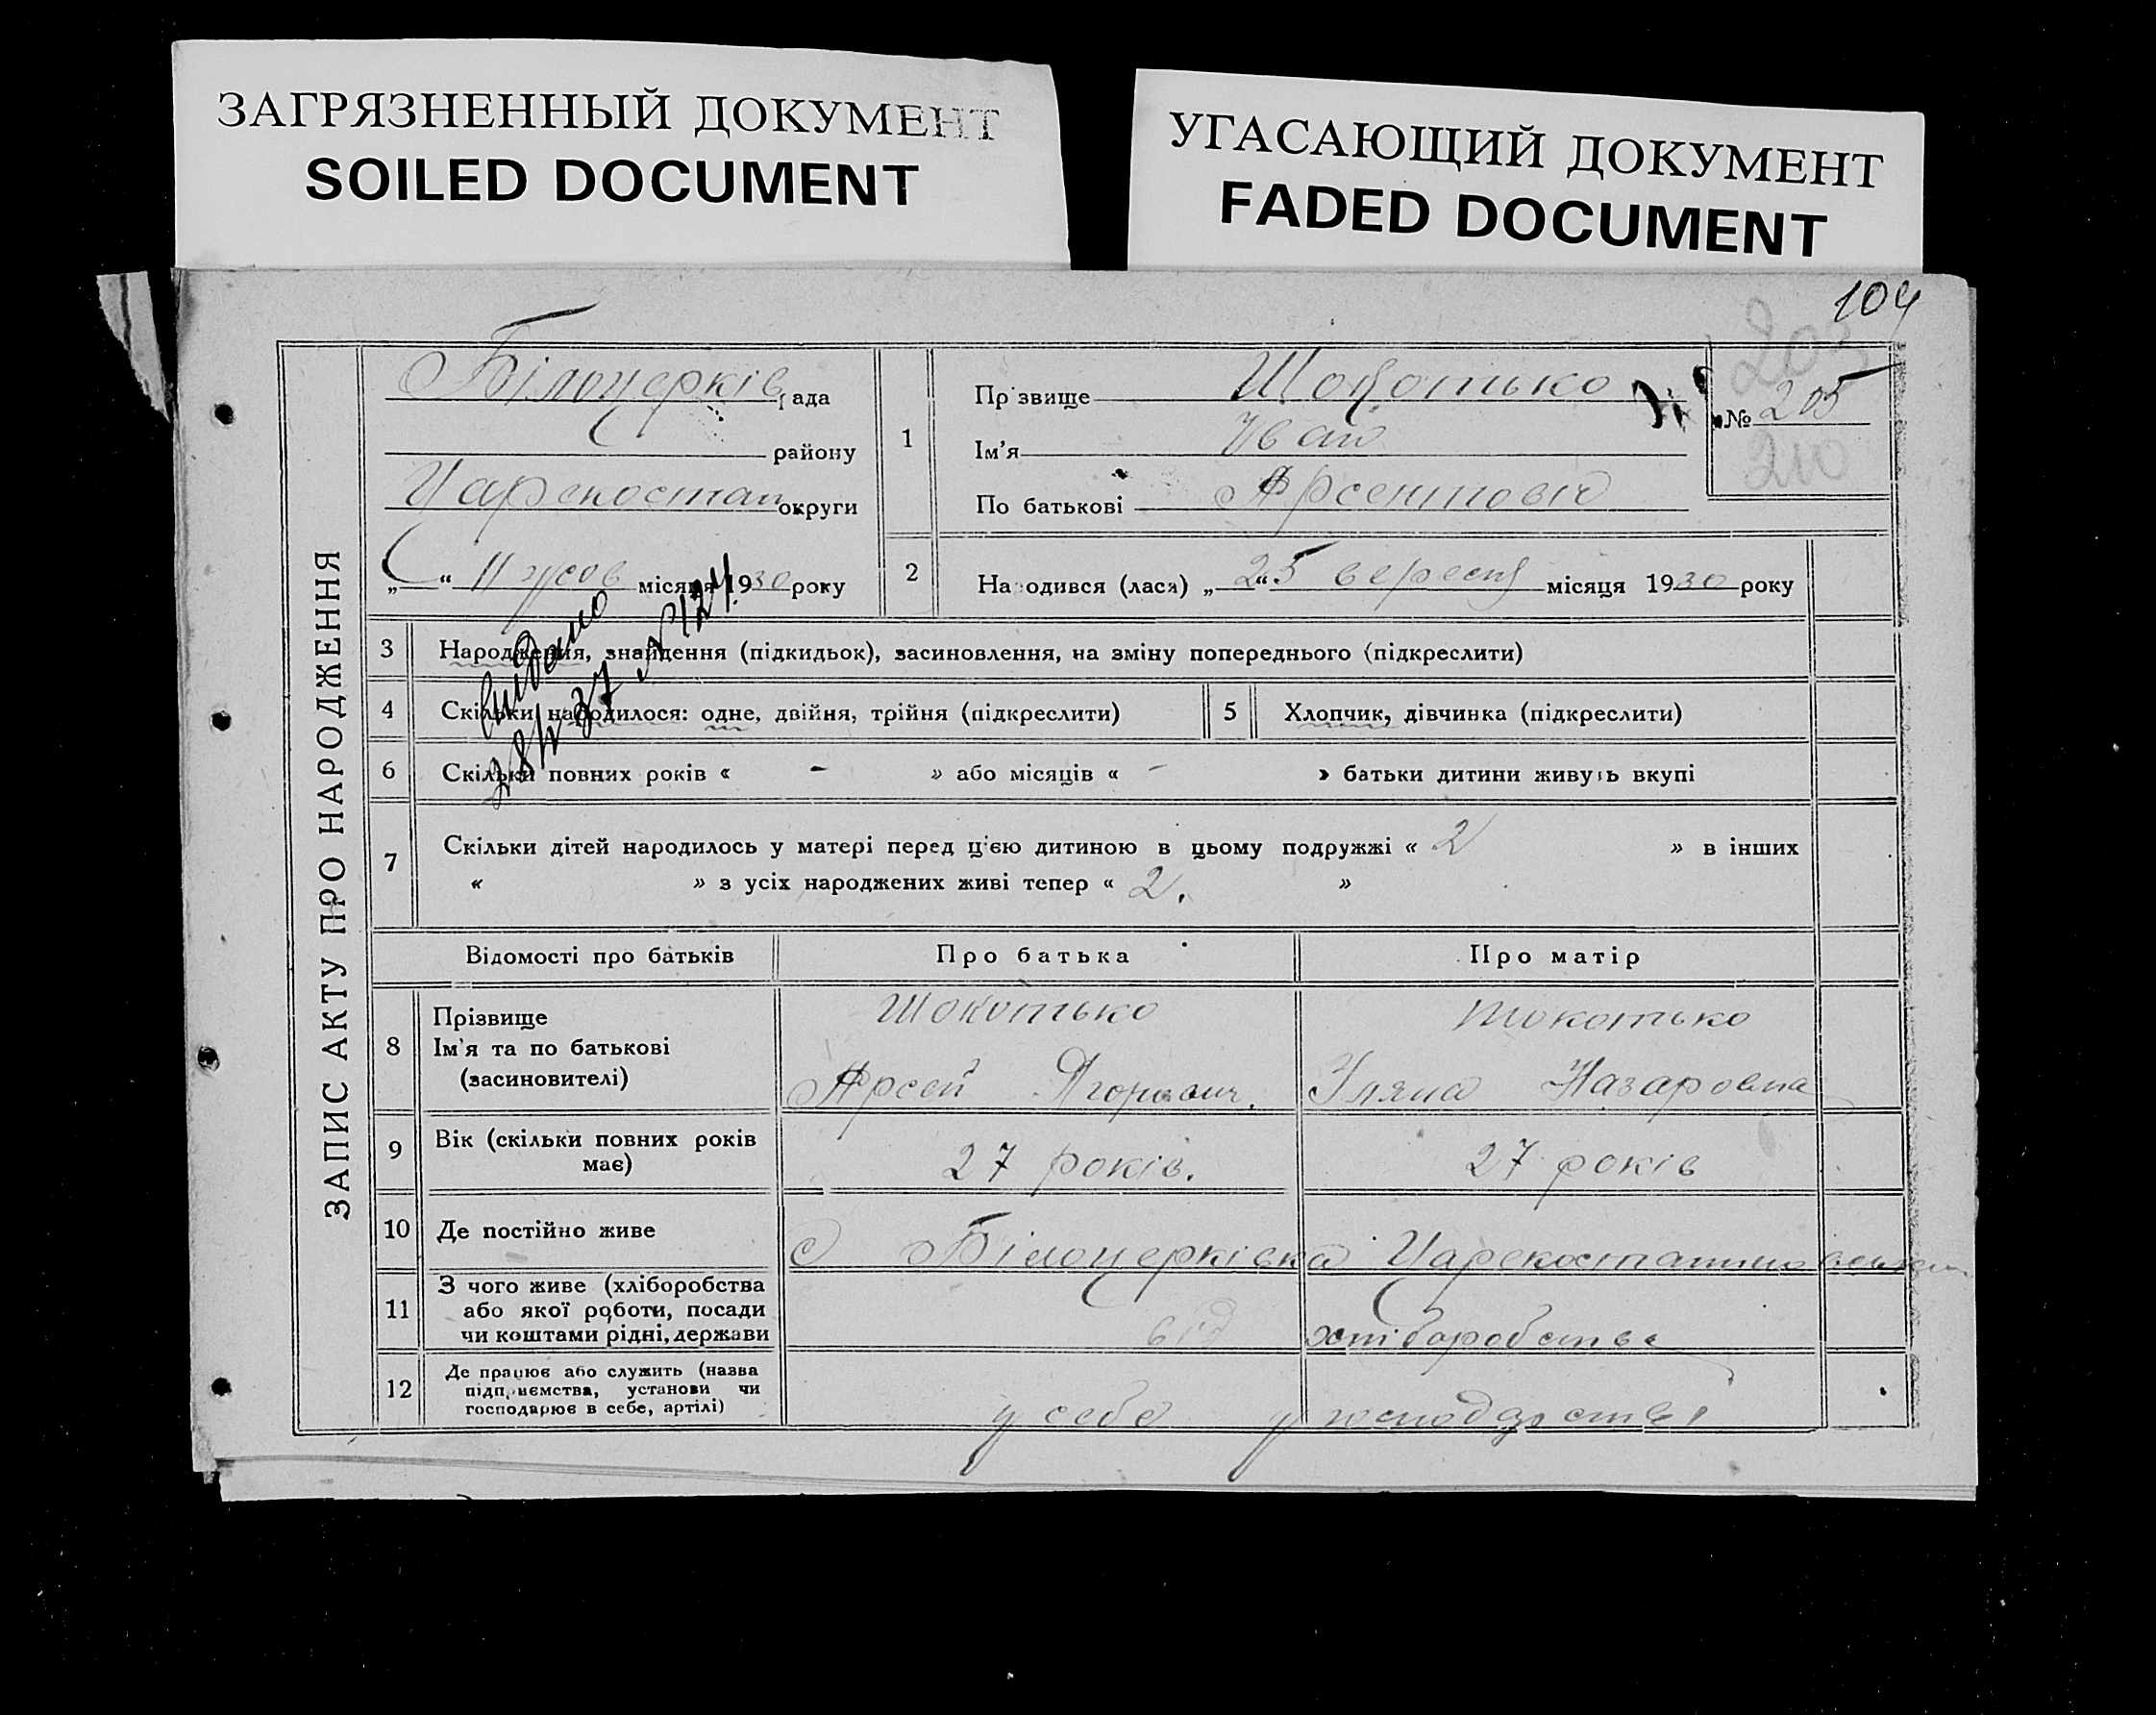 ЗАГРЯЗНЕННЫЙ ДОКУМЕНТ
SOILED DOCUMENT
УГАСАЮЩИЙ ДОКУМЕНТ
FADED DOCUMENT
104
203
ЗАПИС АКТУ ПРО НАРОДЖЕННЯ
Білоцерків рада
району
Царекостан округи
„ “ 11 жов місяця 1930 року
1
Прізвище
Ім'я Іван
По батькові
№ 205
210
2 Народився (лася) „25“ вересня місяця 1930 року
видано
28/IV 37 № 124
3 Народження, знайдення (підкидьок), засиновлення, на зміну попереднього (підкреслити)
4 Скільки народилося: одне, двійня, трійня (підкреслити)
5 Хлопчик, дівчинка (підкреслити)
6 Скільки повних років « - » або місяців « - » батьки дитини живуть вкупі
7 Скільки дітей народилось у матері перед цією дитиною в цьому подружжі « 2 » в інших
« » з усіх народжених живі тепер « 2. »
Відомості про батьків Про батька Про матір
8 Прізвище
Ім'я та по батькові
(засиновителі)
Шокотько Шокотько
Арсей Ягорович. Уляна Назаровна
9 Вік (скільки повних років
має)
27 років. 27 років
10 Де постійно живе с Білоцерківка
11 З чого живе (хліборобства
або якої роботи, посади
чи коштами рідні, держави
від хліборобства
12 Де працює або служить (назва
підприємства, установи чи
господарює в себе, артілі)
у себе у господарстві